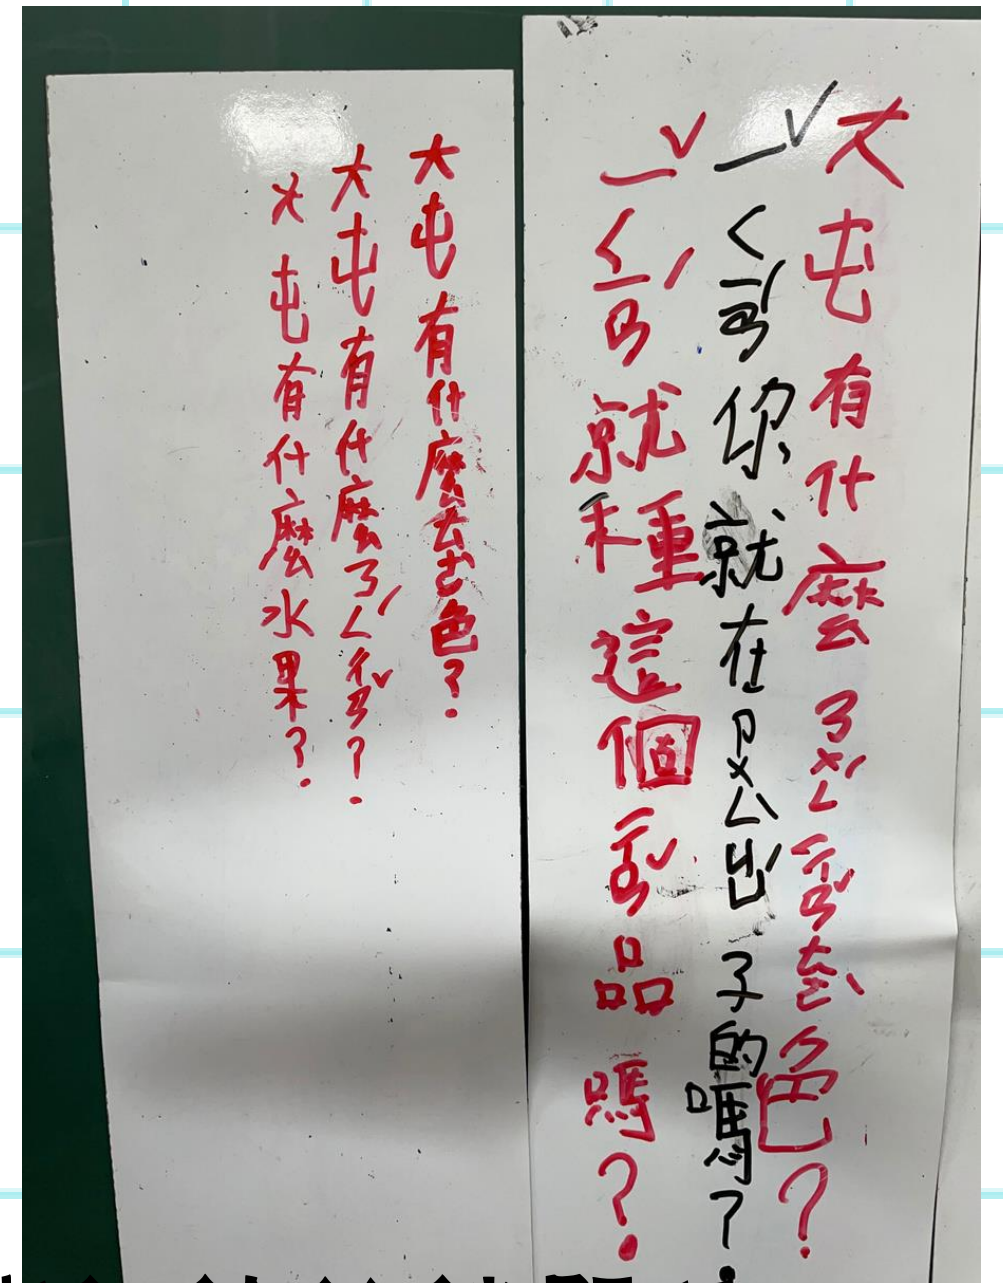 大屯有什麼ㄋㄨㄥˊㄔㄢˇㄊㄜˋ色?
ㄧˇㄑㄧㄢˊ你就在子的嗎?
ㄧˇㄑㄧㄢˊ就種這個ㄔㄢˇ品嗎?
大屯有什麼ㄊㄜˋ色?
大屯有什麼ㄋㄥˊㄔㄢˇ?
大屯有什麼水果?